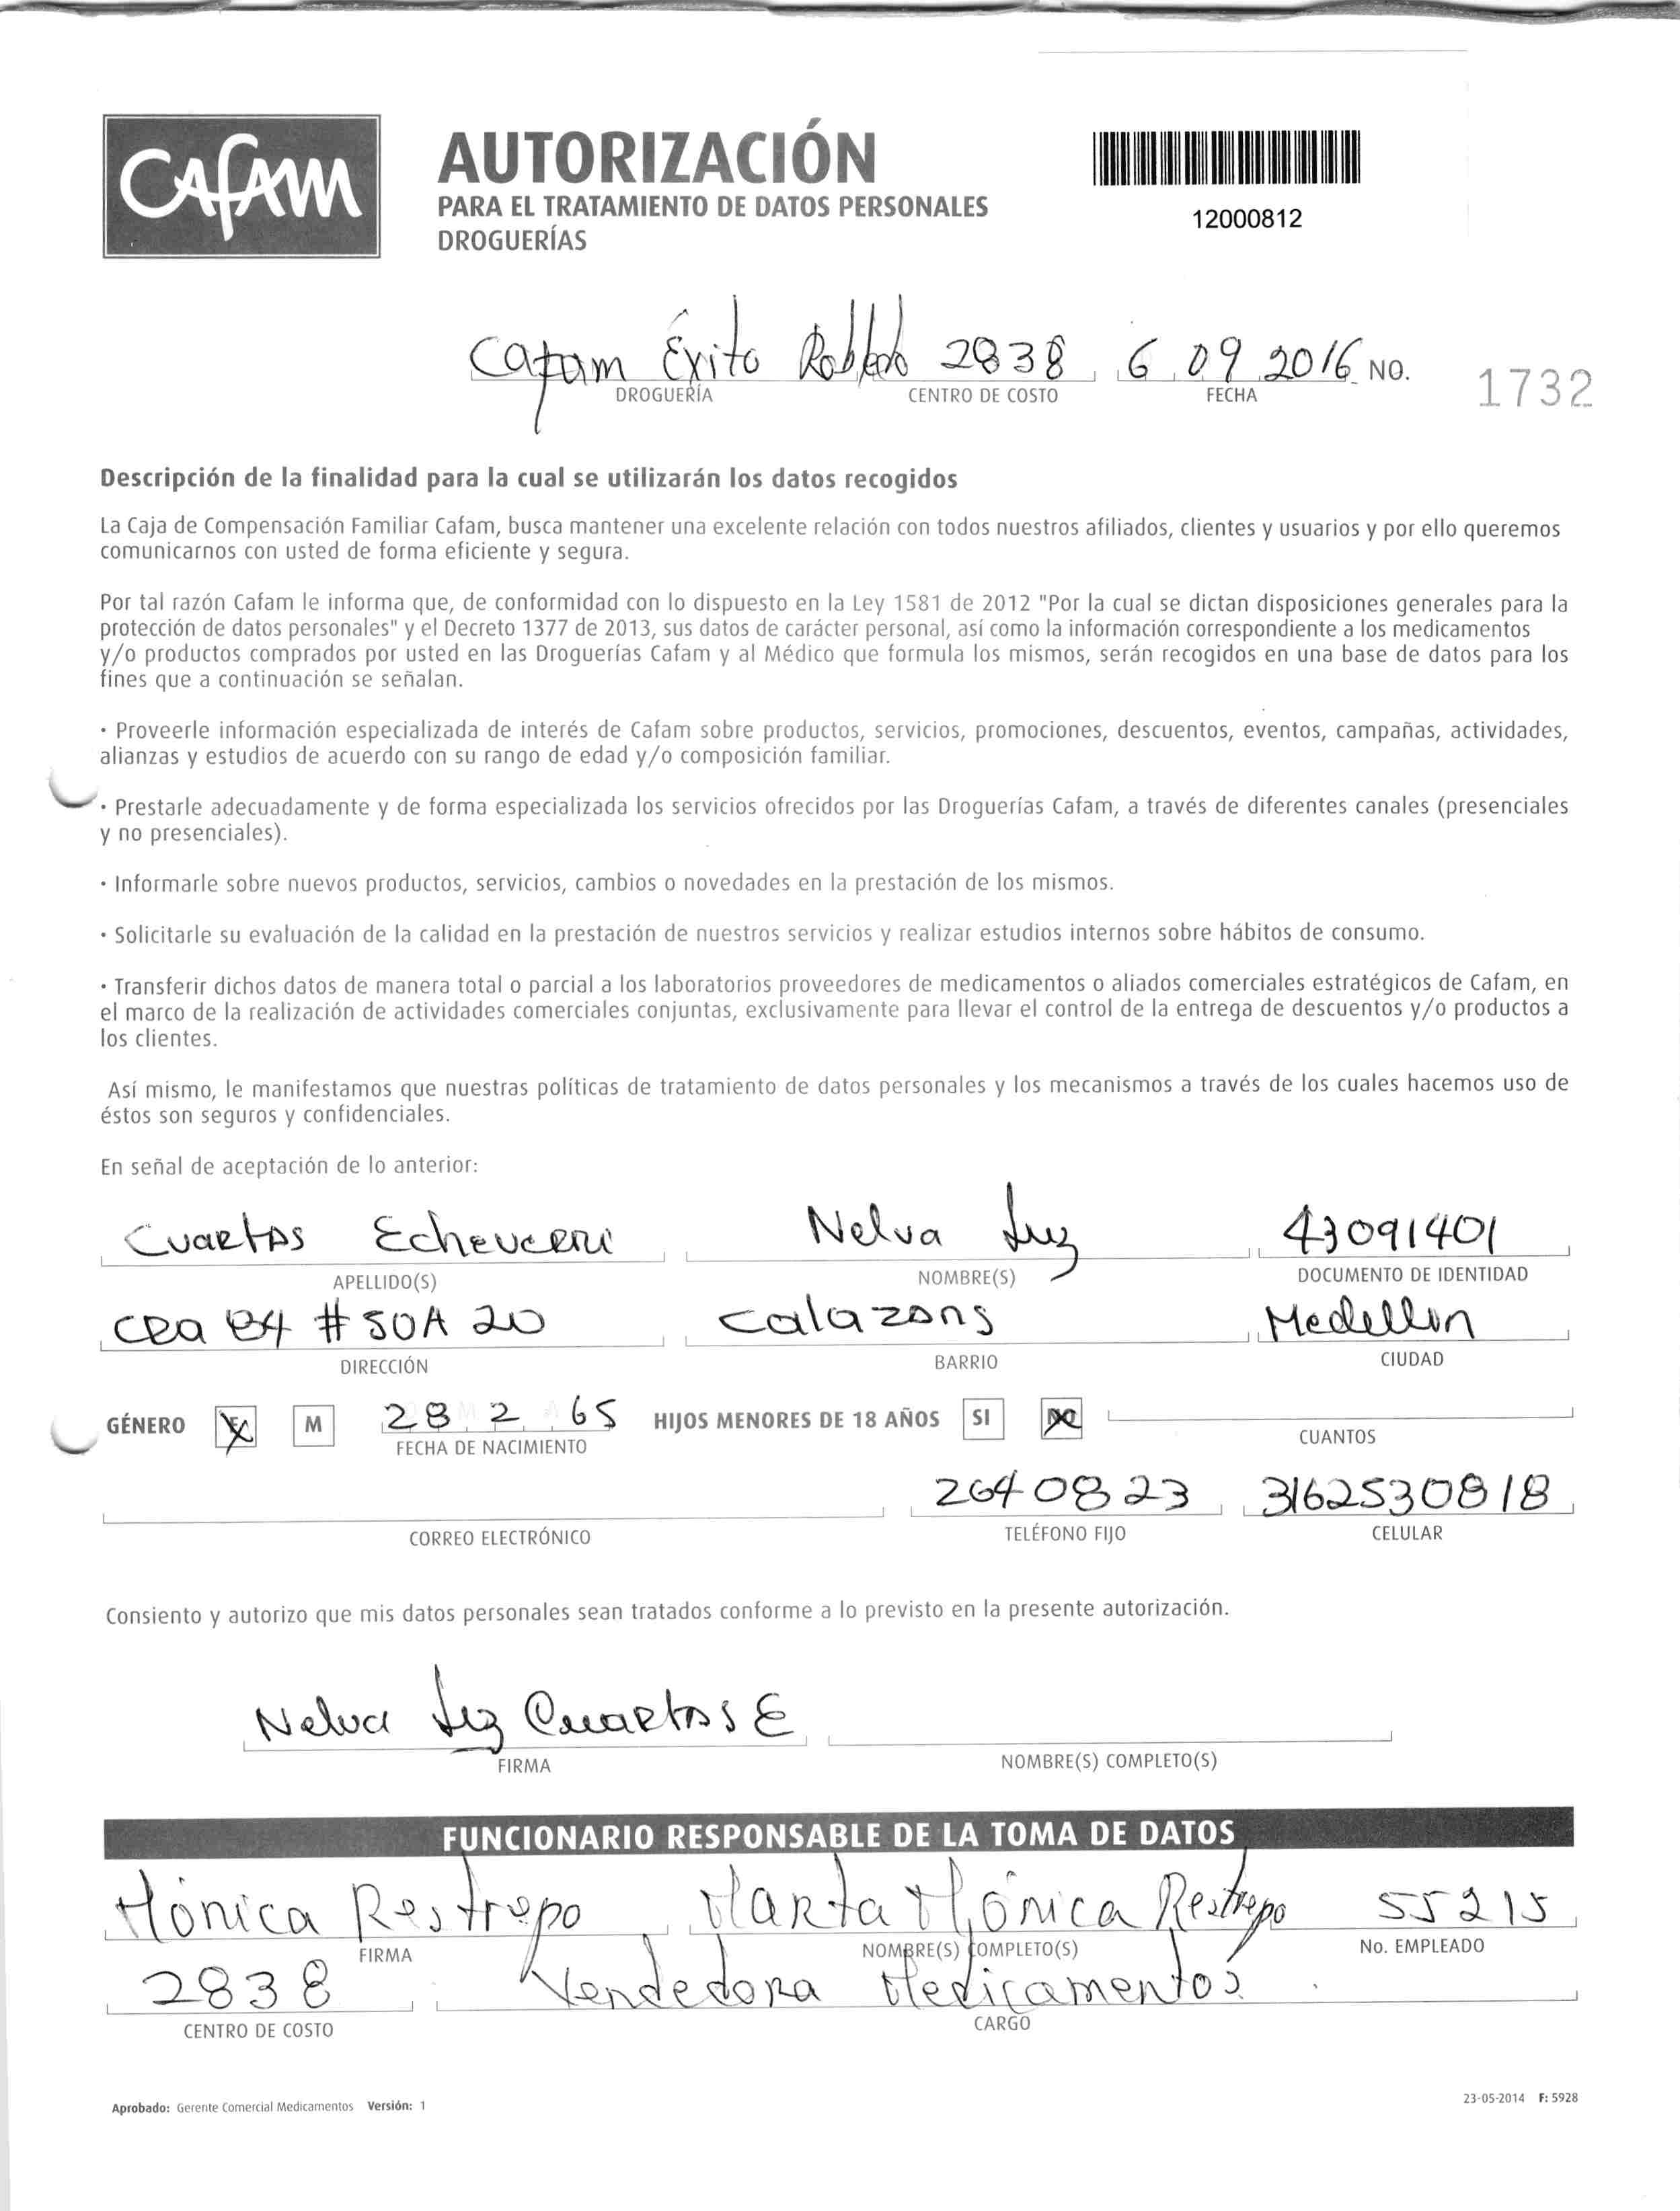 CAFAM
AUTORIZACIÓN
PARA EL TRATAMIENTO DE DATOS PERSONALES
DROGUERÍAS
12000812
Cafam Éxito Robledo 2838 6 09 2016 NO. 1732
DROGUERÍA CENTRO DE COSTO FECHA
Descripción de la finalidad para la cual se utilizarán los datos recogidos
La Caja de Compensación Familiar Cafam, busca mantener una excelente relación con todos nuestros afiliados, clientes y usuarios y por ello queremos
comunicarnos con usted de forma eficiente y segura.
Por tal razón Cafam le informa que, de conformidad con lo dispuesto en la Ley 1581 de 2012 "Por la cual se dictan disposiciones generales para la
protección de datos personales" y el Decreto 1377 de 2013, sus datos de carácter personal, así como la información correspondiente a los medicamentos
y/o productos comprados por usted en las Droguerías Cafam y al Médico que formula los mismos, serán recogidos en una base de datos para los
fines que a continuación se señalan.
· Proveerle información especializada de interés de Cafam sobre productos, servicios, promociones, descuentos, eventos, campañas, actividades,
alianzas y estudios de acuerdo con su rango de edad y/o composición familiar.
· Prestarle adecuadamente y de forma especializada los servicios ofrecidos por las Droguerías Cafam, a través de diferentes canales (presenciales
y no presenciales).
· Informarle sobre nuevos productos, servicios, cambios o novedades en la prestación de los mismos.
· Solicitarle su evaluación de la calidad en la prestación de nuestros servicios y realizar estudios internos sobre hábitos de consumo.
· Transferir dichos datos de manera total o parcial a los laboratorios proveedores de medicamentos o aliados comerciales estratégicos de Cafam, en
el marco de la realización de actividades comerciales conjuntas, exclusivamente para llevar el control de la entrega de descuentos y/o productos a
los clientes.
Así mismo, le manifestamos que nuestras políticas de tratamiento de datos personales y los mecanismos a través de los cuales hacemos uso de
éstos son seguros y confidenciales.
En señal de aceptación de lo anterior:
Cuartas Echeverri Nelva Luz 43091401
APELLIDO(S) NOMBRE(S) DOCUMENTO DE IDENTIDAD
CRa 84 # 50A 20 Calazans Medellin
DIRECCIÓN BARRIO CIUDAD
GÉNERO F M 28 2 65 HIJOS MENORES DE 18 AÑOS SI NO
FECHA DE NACIMIENTO CUANTOS
2640823 3162530818
CORREO ELECTRÓNICO TELÉFONO FIJO CELULAR
Consiento y autorizo que mis datos personales sean tratados conforme a lo previsto en la presente autorización.
Nelva Luz Cuartas E
FIRMA NOMBRE(S) COMPLETO(S)
FUNCIONARIO RESPONSABLE DE LA TOMA DE DATOS
Mónica Restrepo Marta Mónica Restrepo 55215
FIRMA NOMBRE(S) COMPLETO(S) No. EMPLEADO
2838 Vendedora Medicamentos
CENTRO DE COSTO CARGO
Aprobado: Gerente Comercial Medicamentos Versión: 1 23-05-2014 F: 5928